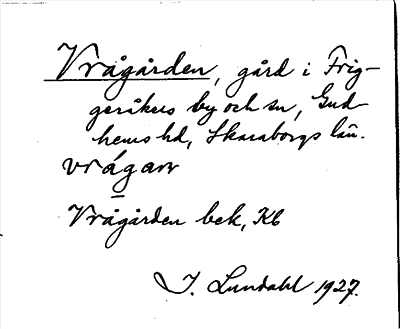 Vrågården, gård i Frig-
geråkers by och sn, Gud-
hems hd, Skaraborgs län.
vrågaɴ
Vrågården bek, Kb
I. Lundahl 1927.